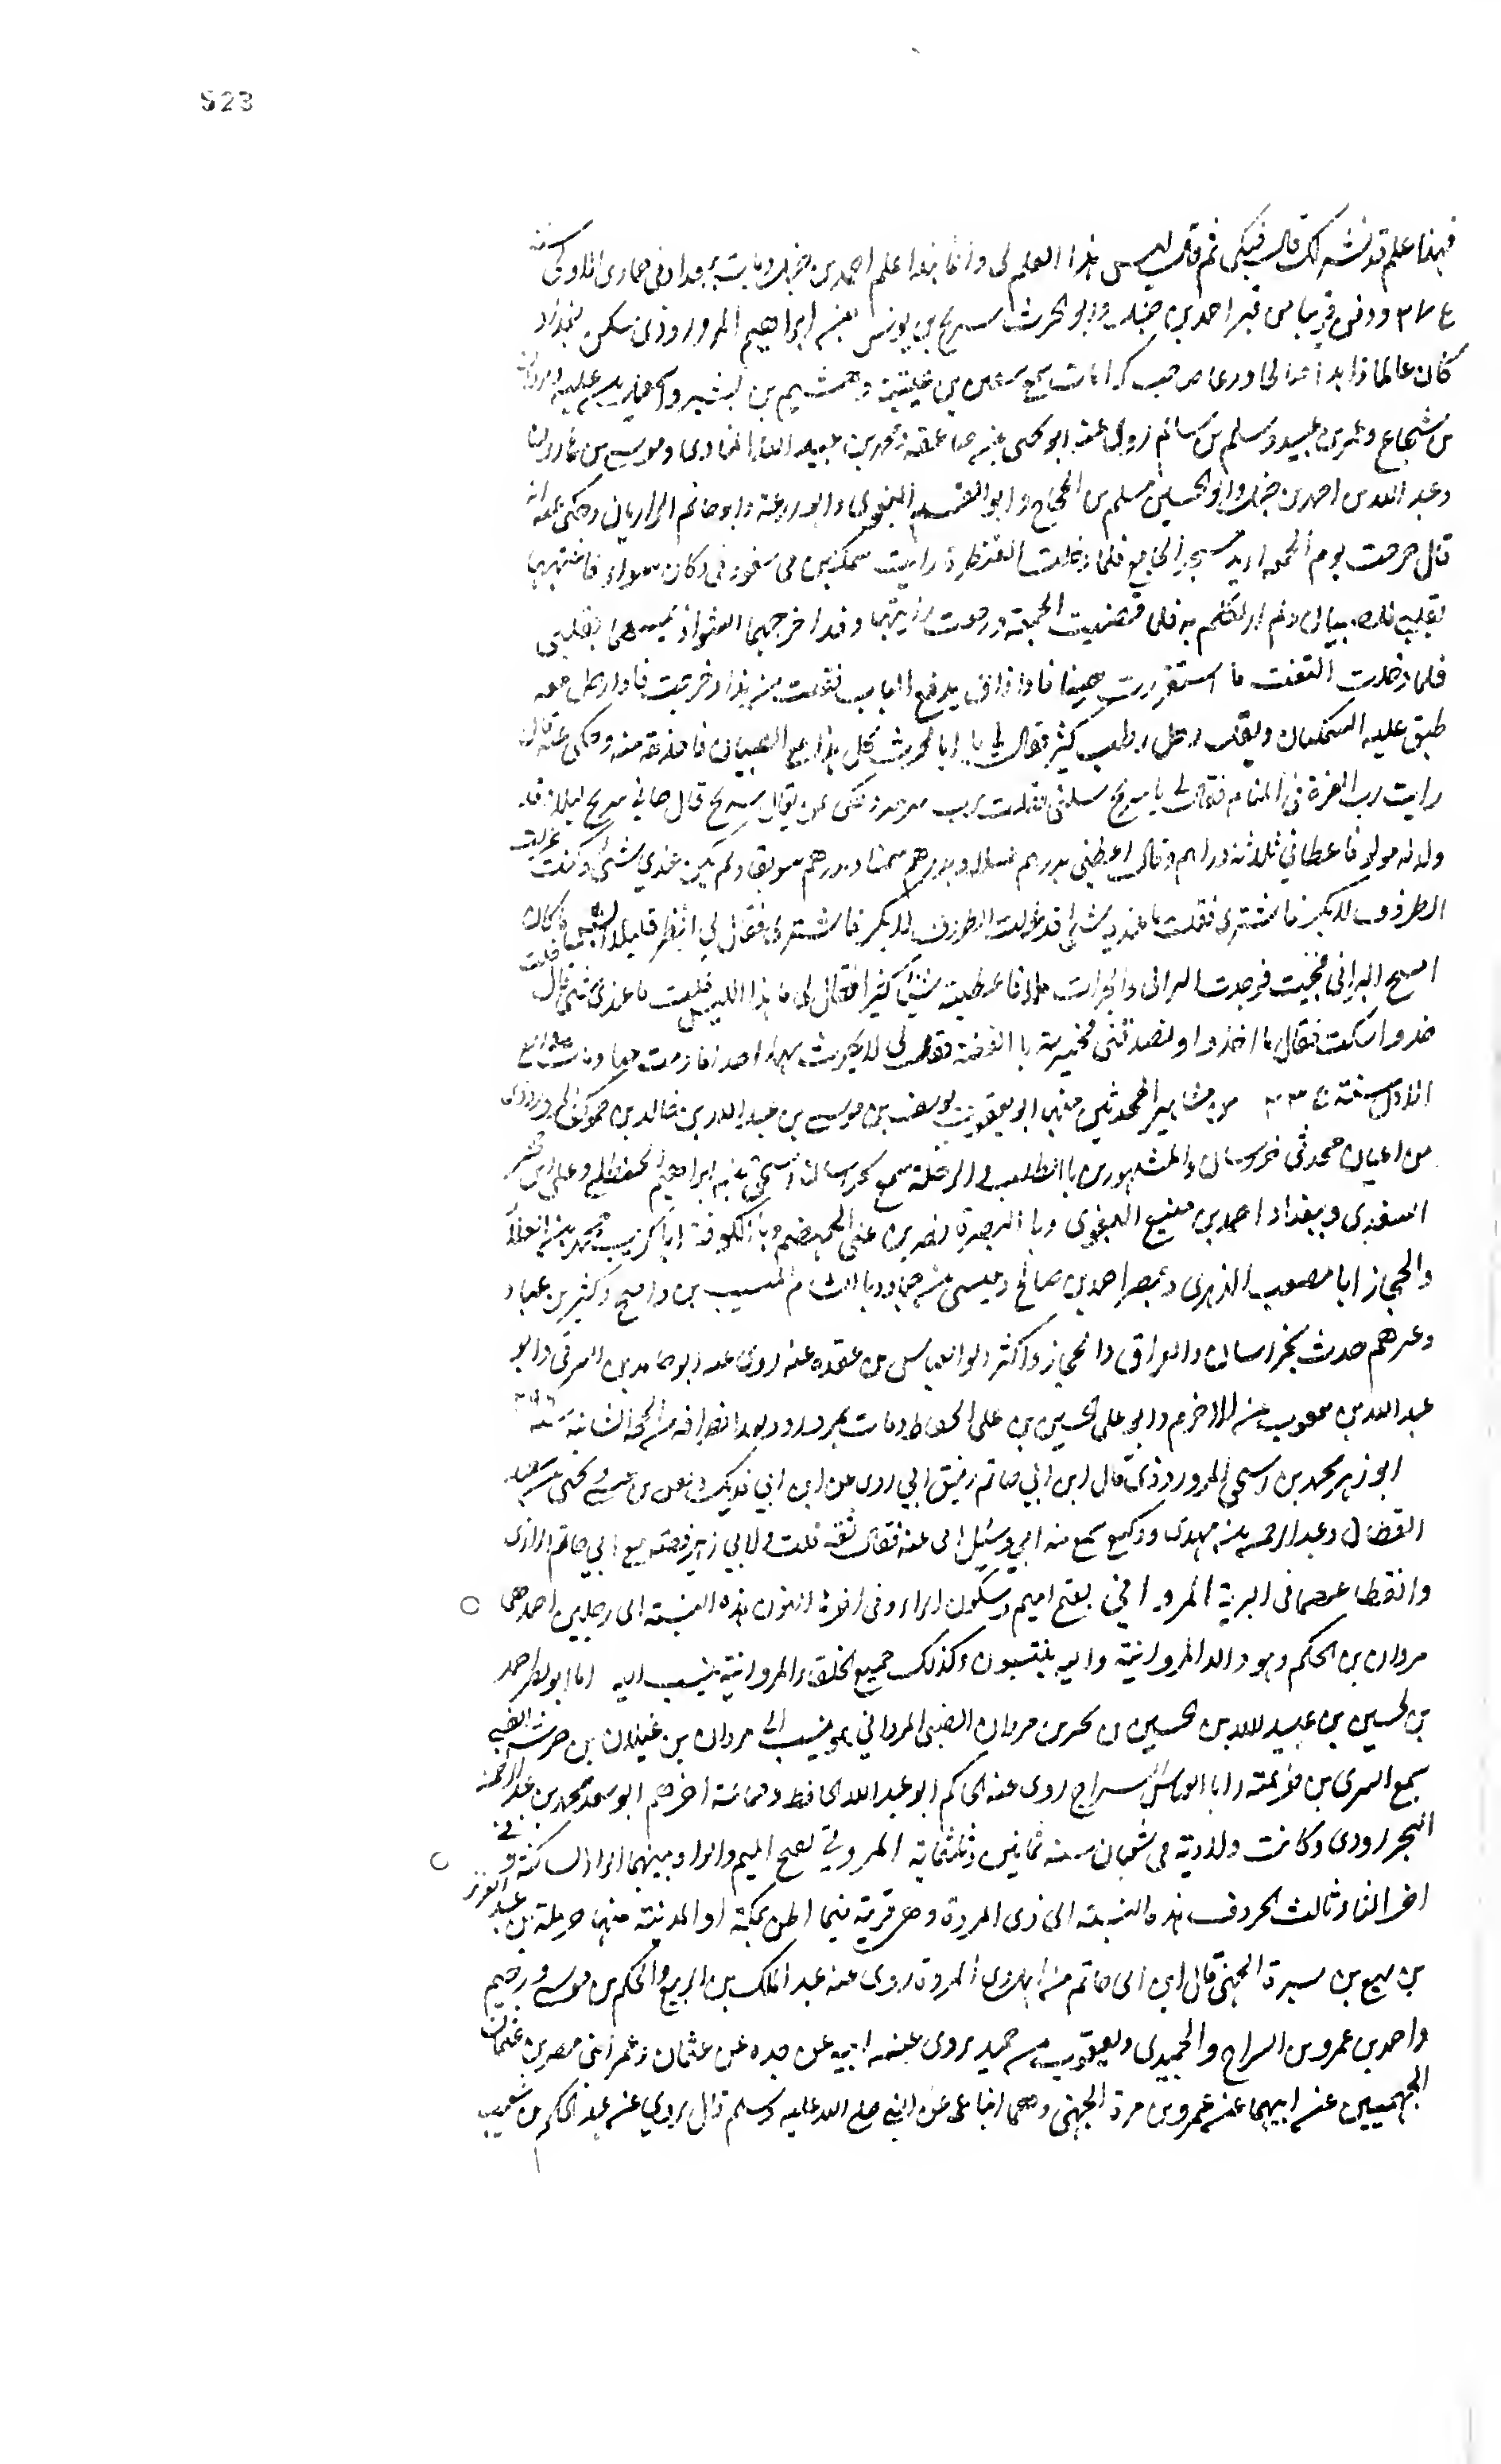 523
فهذا علم قد نشر لك قال فبكى ثم قال ليس هذا العلم لي وانما هذا علم احمد بن حنبل ومات ببغداد في جمادى الاولى سنة
ودفن قريبا من قبر احمد بن حنبل وابو الحرث سريج بن يونس بن ابراهيم المروروذي سكن بغداد
كان عالما زاهدا ورعا صاحب كرامات سمع بن خليفة وهشيم بن بشير واسمعيل بن علية ومروان
بن شجاع وعمر بن عبيد وسلم بن سالم روى عنه ابو يحيى صاعقة ومحمد بن عبيد الله المنادى وموسى بن هارون
وعبد الله بن احمد بن حنبل وابو الحسين مسلم بن الحجاج وابو القسم البغوي وابو زرعة وابو حاتم الرازيان وحكى عنه انه
قال خرجت يوم الجمعة اريد مسجد الجامع فلما دخلت القنطرة رايت سمكتين في سفود في دكان فاشتهيتهما
بقلبي للصبيان ولم اتكلم به فلما قضيت الجمعة ورجعت رايتهما وقد اخرجهما
فلما دخلت التفت ما استقررت هينا فاذا داق يدق الباب فقلت من هذا وخرجت فاذا رجل معه
طبق عليه السمكتان وبقل ورطب كثير فقال لي يا ابا الحرث كل هذا مع الصبيان فاخذته منه وحكى عنه قال
رايت رب العزة في المنام فقال لي يا سريج سلني فقلت يا رب قال
ولد له مولود فاعطاني ثلاثة دراهم وقال اعطني بدرهم عسلا وبدرهم سمنا وبدرهم سويقا ولم يكن عندي شيء وكنت عزلت
الظروف لابكر فاشتري فقلت ما عندي شيء قد عزلت الظروف لابكر فاشتري فقال لي انظر قليلا ايش ما كان
امسح البراني فجئت فوجدت البراني والجرات ملأ فاعطيته شيئا كثيرا فقال لي ما هذا اليس قلت ما عندي شيء قال قلت
خذ واسكت فقال ما اخذ او تصدقني فخبرته بالقصة فقال لي لا تحدث بهذا احدا ما دمت حيا ومات في ربيع
الاول سنة ٢٣٥ من مشاهير المحدثين منها ابو يعقوب يوسف بن موسى بن عبد الله بن خالد بن حموك المروروذي
من اعيان محدثي خراسان والمشهورين بالطلب والرحلة سمع بخراسان اسحق بن ابراهيم الحنظلي وعلي بن حجر
السعدي وببغداد احمد بن منيع البغوي وبالبصرة نصر بن علي الجهضمي وبالكوفة ابا كريب محمد بن العلاء
والحجاز ابا مصعب الزهري وبمصر احمد بن صالح وعيسى بن حماد وبالشام المسيب بن واضح وكثير بن عبيد
وغيرهم حدث بخراسان والعراق والحجاز واكثر ابو العباس بن عقدة عنه روى عنه ابو حامد بن الشرقي وابو
عبد الله بن يعقوب بن الاخرم وابو علي الحسين بن علي الحافظ ومات بمروروذ بعد انصرافه من الحجة الثانية سنة
ابو زهير محمد بن اسحق المروروذي قال ابن ابي حاتم رفيق ابي روى عن ابن ابي فديك ومعن بن عيسى ويحيى بن سعيد
القطان وعبد الرحمن بن مهدي ووكيع سمع منه ابي وسئل ابي عنه فقال ثقة قلت ولابي زهير قصة مع ابي حاتم الرازي
وانقطاعهما في البرية المرواني بفتح الميم وسكون الراء وفي اخرها النون هذه النسبة الى رجلين احدهما
مروان بن الحكم وهو والد المروانية واليه ينتسبون وكذلك جميع الخلفاء المروانية ينسب اليه اما ابو نصر احمد
بن الحسين بن عبيد الله بن الحسين بن بحر بن مروان الضبي المرواني هو منسب الى مروان بن غيلان بن خرشة الضبي
سمع السري بن خزيمة وابا العباس السراج روى عنه الحاكم ابو عبد الله الحافظ وجماعة اخرهم ابو سعد محمد بن عبد الرحمن
الجنزرودي وكانت ولادته في شعبان سنة ثمانين وثلثماية المروتي بفتح الميم والواو وبينهما الراء الساكنة وفي
اخرها التاء ثالث الحروف هذه النسبة الى ذي المروة وهي قرية فيما اظن بمكة او المدينة منها حرملة بن عبد العزيز
بن ربيع بن سبرة الجهني قال ابن ابي حاتم من اهل ذي المروة روى عنه عبد الملك بن الربيع والحكم بن موسى ودحيم
واحمد بن عمرو بن السراج والحميدي ويعقوب بن حميد يروى عن ابيه عن جده عن عثمان وعمر ابني مضرس بن عثمان
الجهنيين عن ابيهما عن عمرو بن مرة الجهني وهما عن النبي صلى الله عليه وسلم قال يروي عنه عبد الحكم بن شعيب